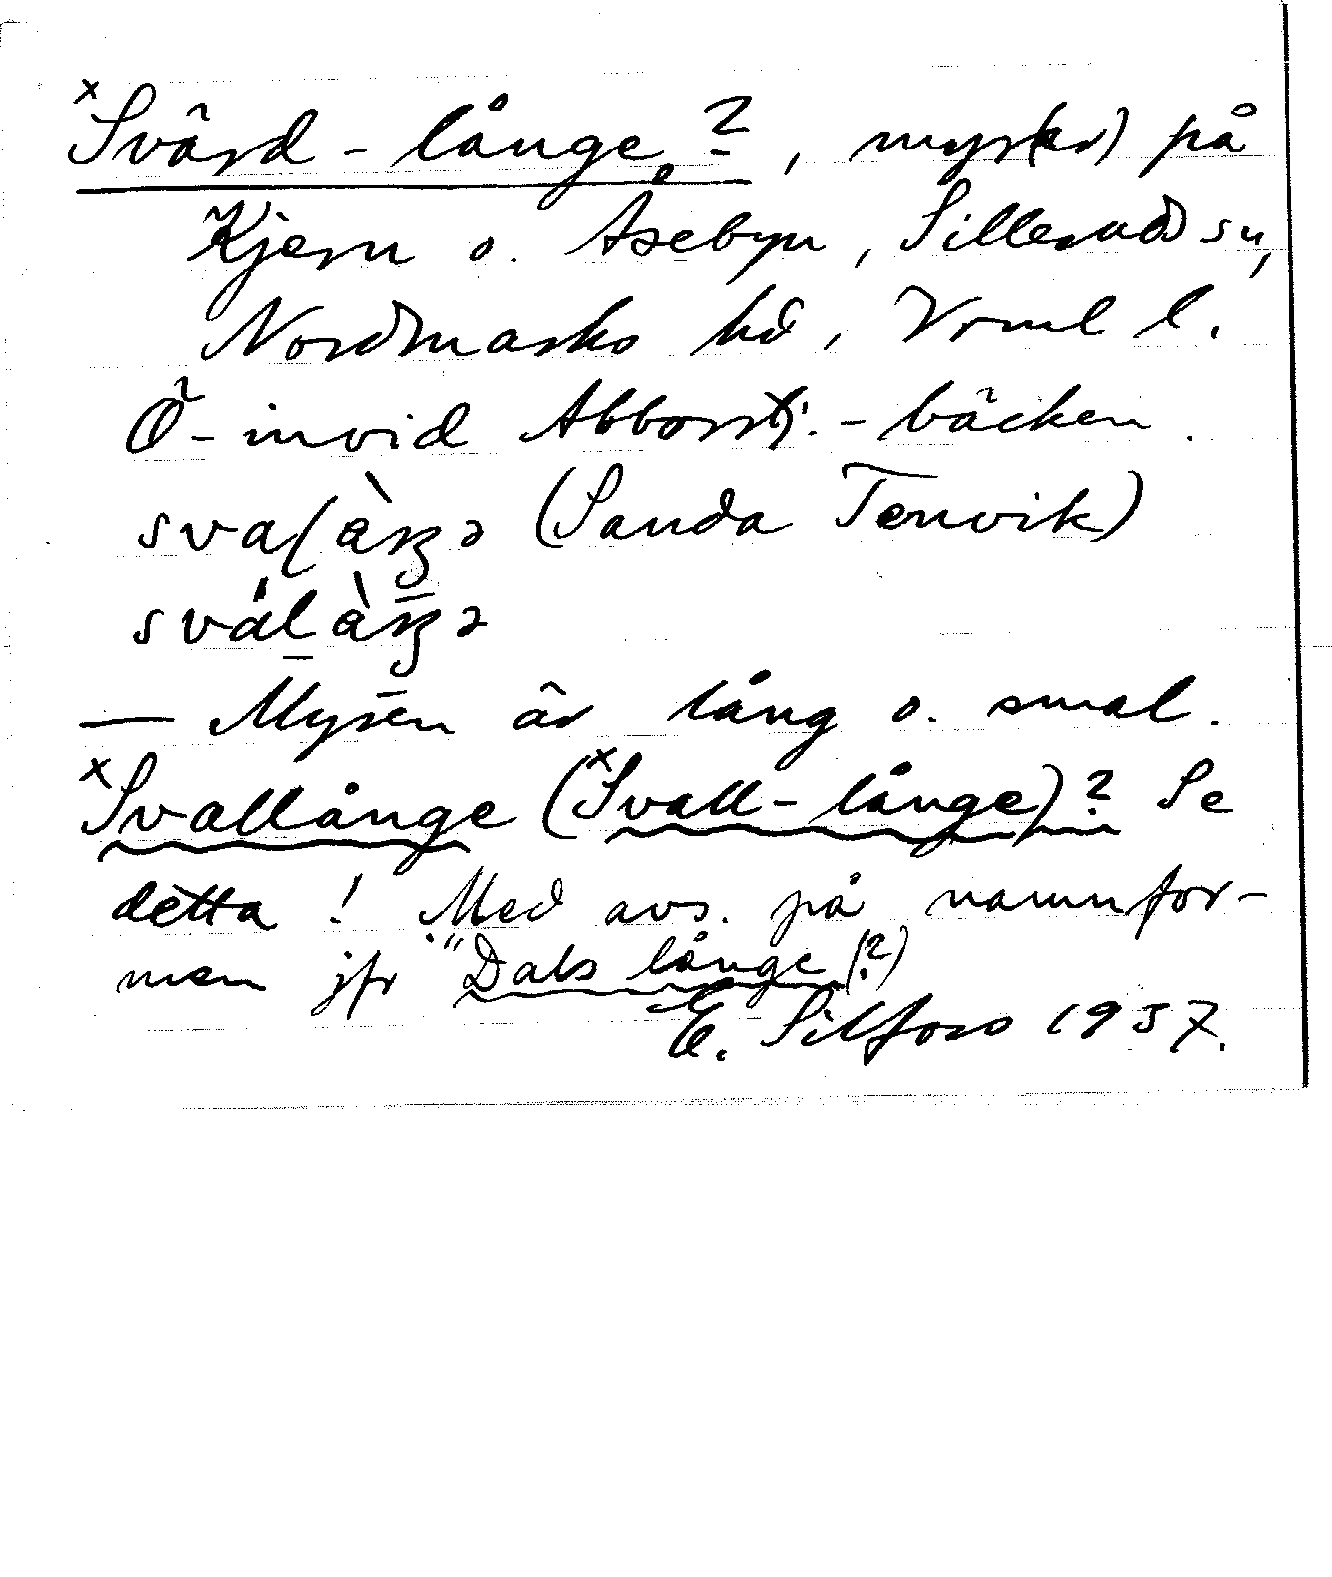 ˣSvärd-långe ?, myr(kr) på
Kjern o. Åsebyn, Sillerud sn,
Nordmarks hd, Vrml l.
Ö-invid Abborrtj.-bäcken.
(Sanda Tenvik)
— Myren är lång o. smal.
ˣSvallånge (ˣSvall-långe)? Se
detta! Med avs. på namnfor-
men jfr "Dals långe (?)
E. Silfors 1937.